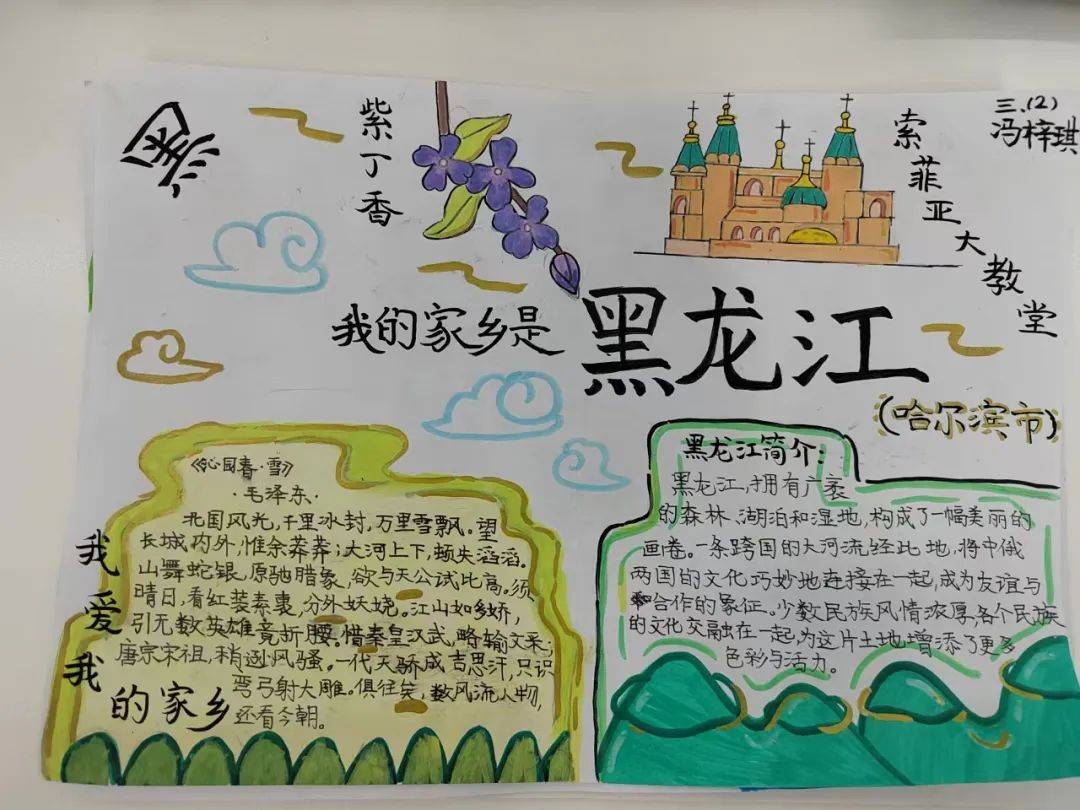 黑
紫丁香
索菲亚大教堂
三、(2)
冯梓琪
我的家乡是
黑龙江
(哈尔滨市)
《沁园春·雪》
·毛泽东·
北国风光,千里冰封,万里雪飘。望
长城内外,惟余莽莽;大河上下,顿失滔滔。
山舞蛇银,原驰腊象,欲与天公试比高。须
晴日,看红装素裹,分外妖娆。江山如多娇,
引无数英雄竞折腰。惜秦皇汉武,略输文采,
唐宗宋祖,稍逊风骚。一代天骄成吉思汗,只识
弯弓射大雕。俱往矣,数风流人物,
还看今朝。
我爱我
的家乡
黑龙江简介:
黑龙江,拥有广袤
的森林、湖泊和湿地,构成了一幅美丽的
画卷。一条跨国的大河流经此地,将中俄
两国的文化巧妙地连接在一起,成为友谊与
合作的象征。少数民族风情浓厚,各个民族
的文化交融在一起,为这片土地增添了更多
色彩与活力。